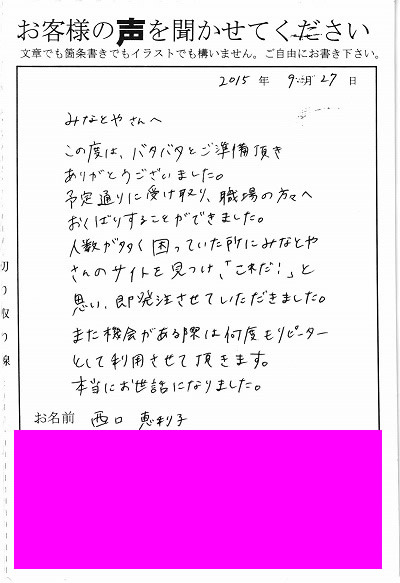 お客様の声を聞かせてください
文章でも箇条書きでもイラストでも構いません。ご自由にお書き下さい。
2015 年 9 月 27 日
みなとやさんへ
この度は、バタバタとご準備頂き
ありがとうございました。
予定通りに受け取り、職場の方々へ
おくばりすることができました。
人数が多く困っていた所にみなとや
さんのサイトを見つけ、「これだ!」と
思い、即発注させていただきました。
また機会がある際は何度もリピーター
として利用させて頂きます。
本当にお世話になりました。
お名前 西口 恵利子